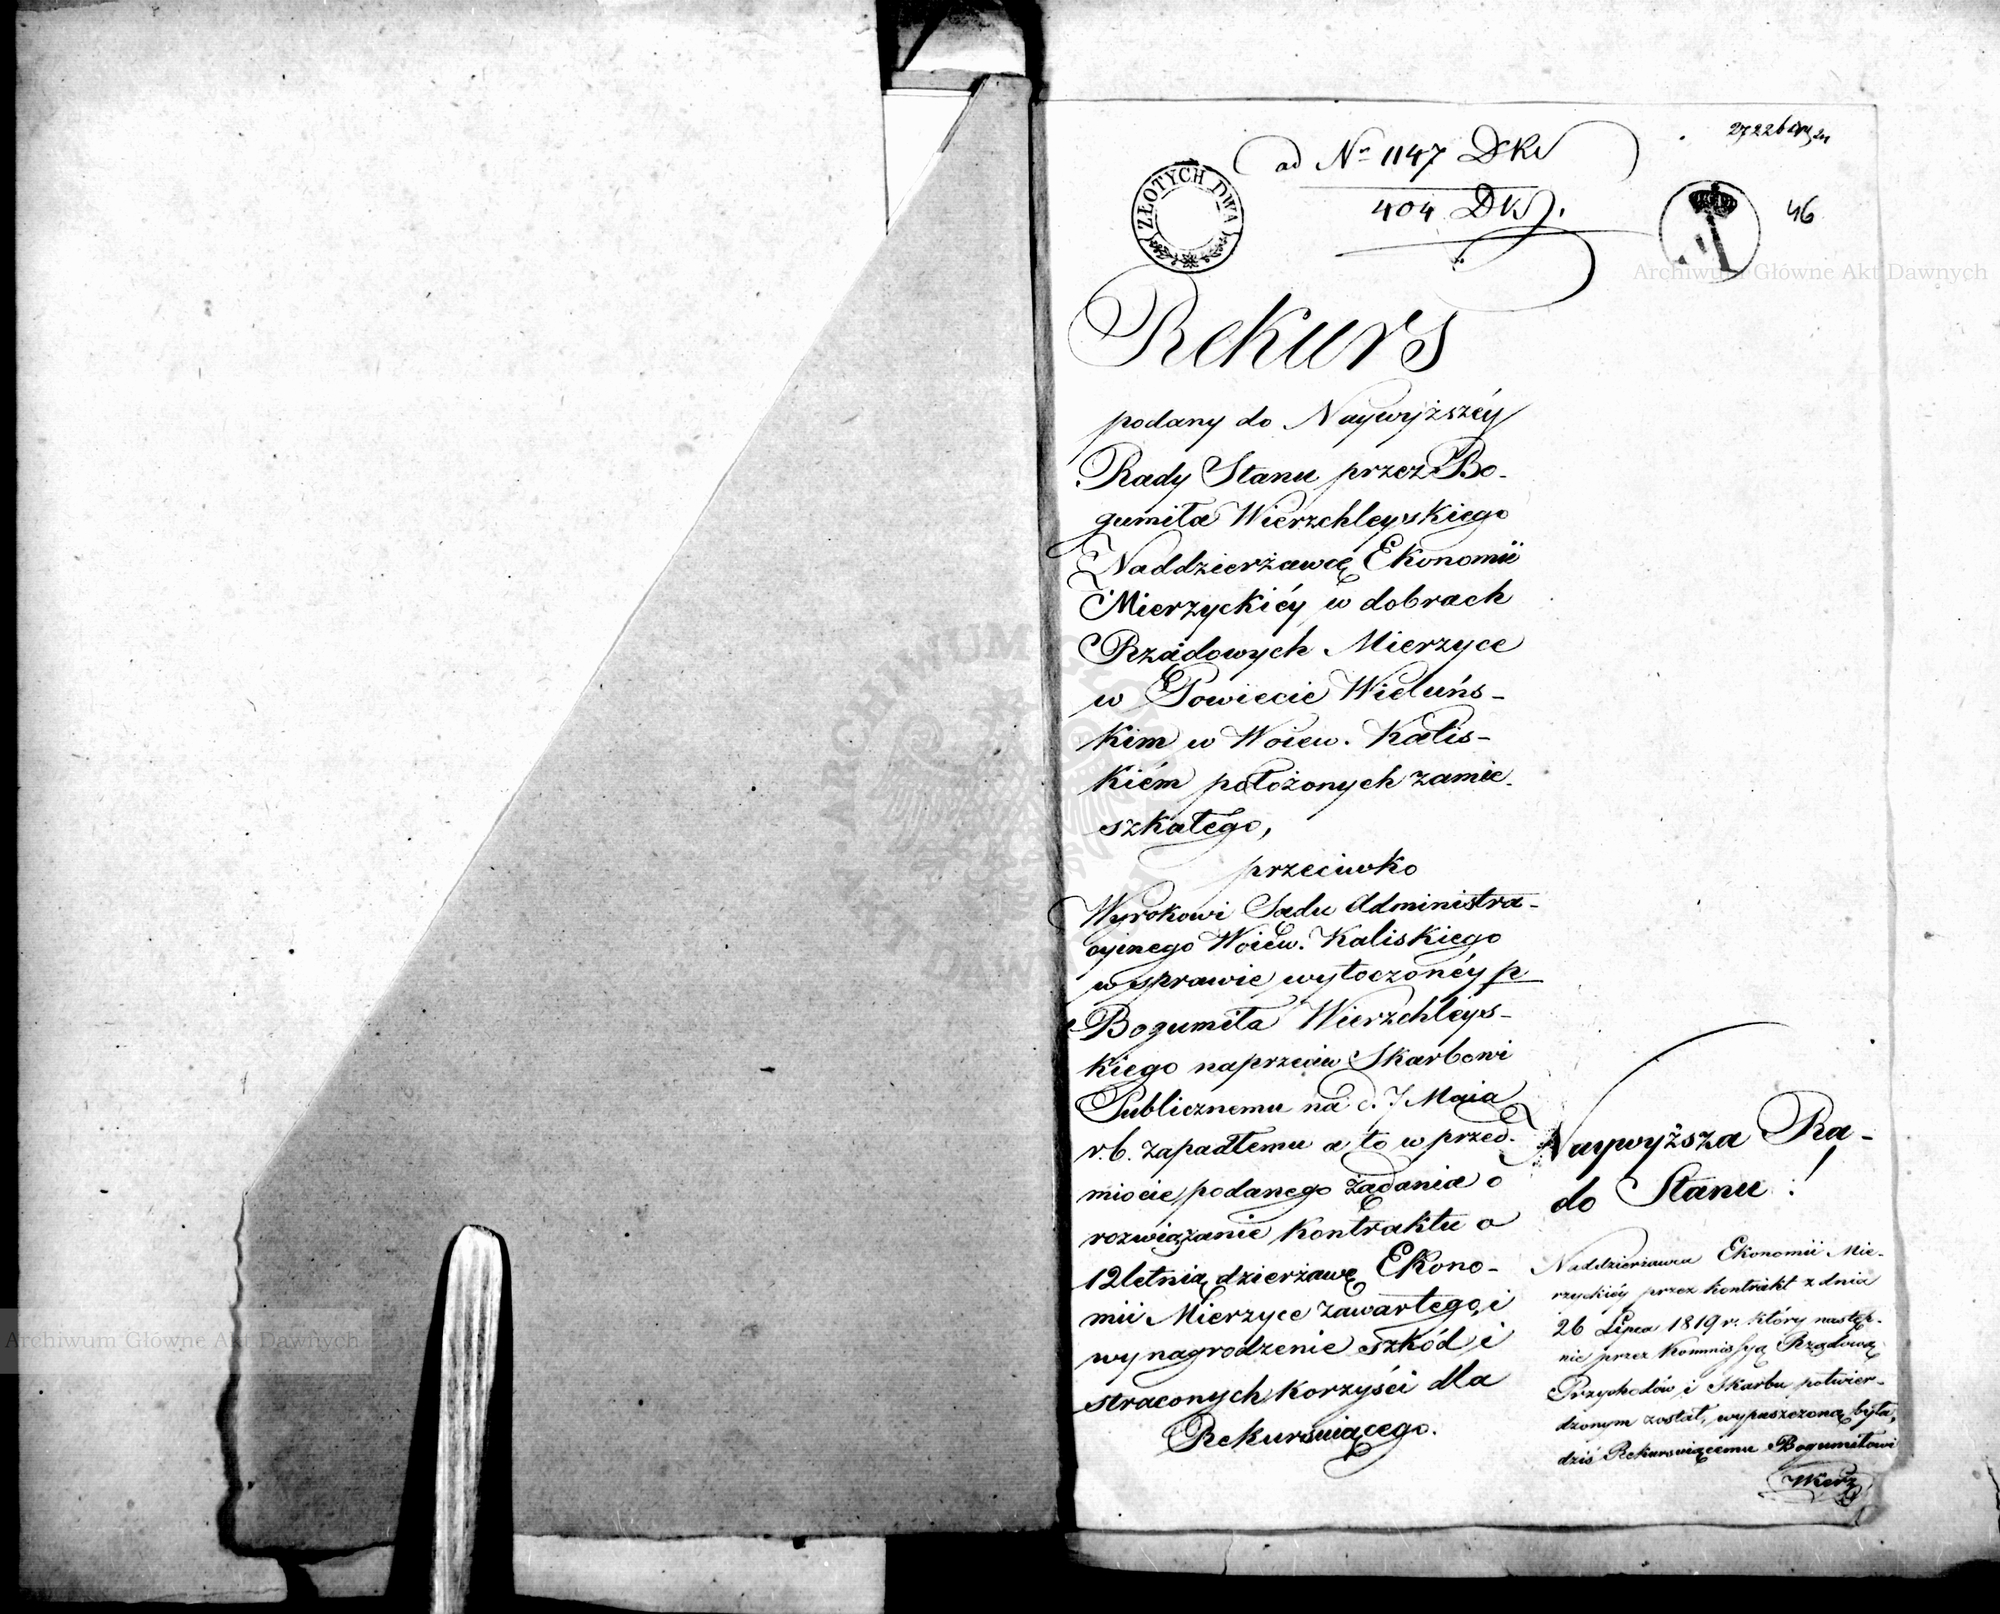 ad No 1147 DKS
404 DKS.
46
ZŁOTYCH DWA
Rekurs
podany do Naywyższéy
Rady Stanu przez Bo-
gumiła Wierzchleyskiego
Naddzierżawcę Ekonomii
Mierzyckiéy w dobrach
Rządowych Mierzyce
w Powiecie Wieluńs-
kim w Woiew. Kalis-
kiém położonych zamie-
szkałego,
przeciwko
Wyrokowi Sądu Administra-
cyinego Woiew. Kaliskiego
w sprawie wytoczonéy p
Bogumiła Wierzchleys-
kiego naprzeciw Skarbowi
Publicznemu na d. 7 Maia
r.b. zapadłemu a to w przed-
miocie podanego żądania o
rozwiązanie kontraktu o
12letnią dzierżawę Ekono-
mii Mierzyce zawartego, i
wynagrodzenie szkód i
straconych korzyści dla
Rekursuiącego.
Naywyższa Ra-
do Stanu!
Naddzierżawa Ekonomii Mie-
rzyckiéy przez kontrakt z dnia
26 Lipca 1819 r. który następ-
nie przez Kommissyą Rządową
Przychodów i Skarbu potwier-
dzonym został, wypuszczoną była,
dziś Rekursuiącemu Bogumiłowi
Wierz
Archiwum Główne Akt Dawnych
Archiwum Główne Akt Dawnych